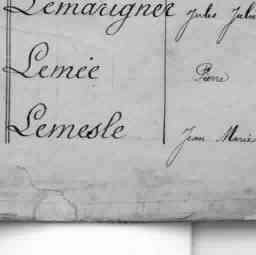 Lemarigner Jules Julien
Lemée Pierre
Lemesle Jean Marie